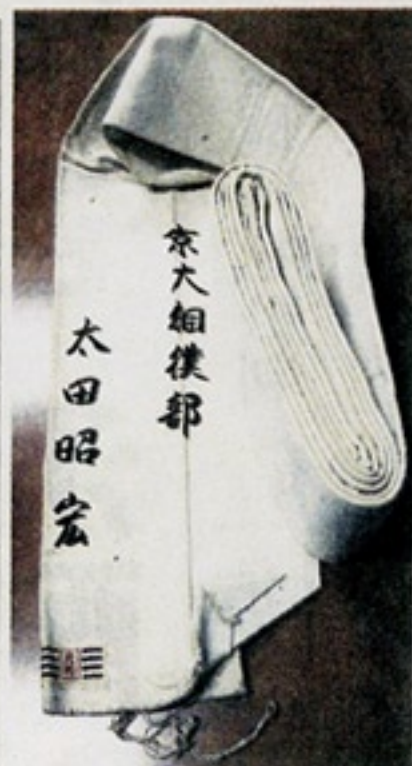 京大相撲部
太田昭宏